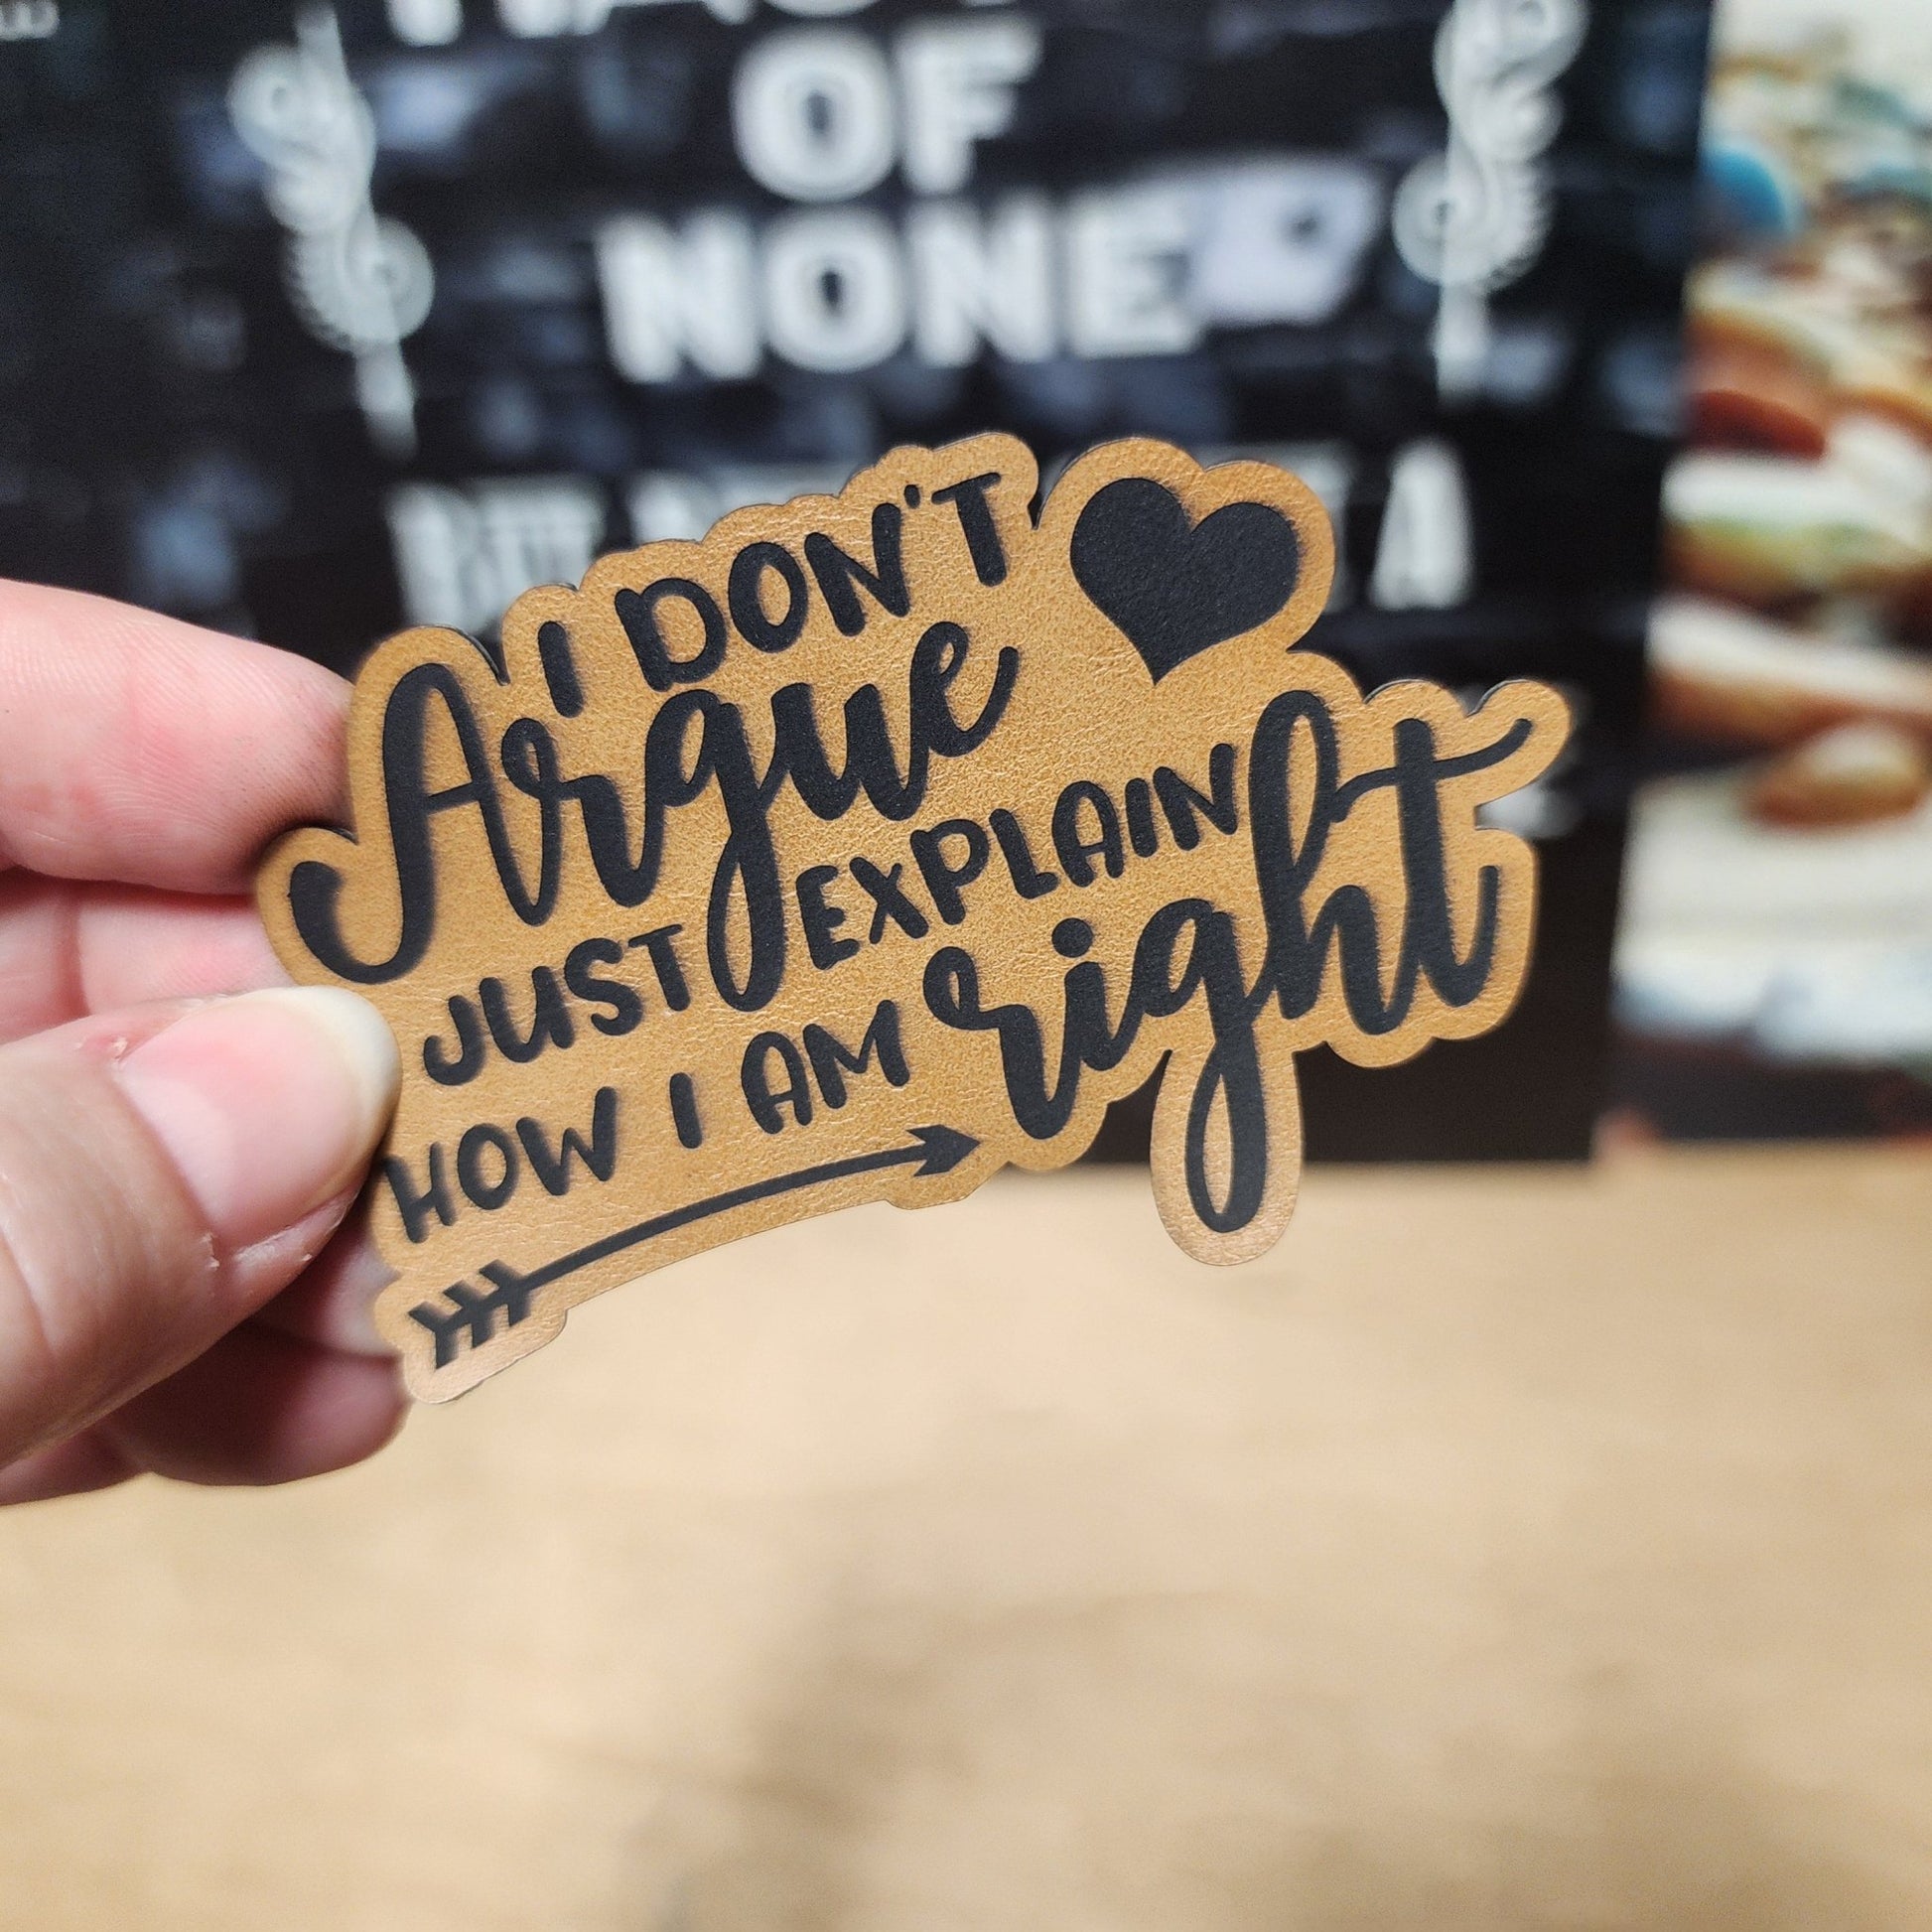 OF
NONE
I DON'T
Argue
JUST EXPLAIN
HOW I AM right